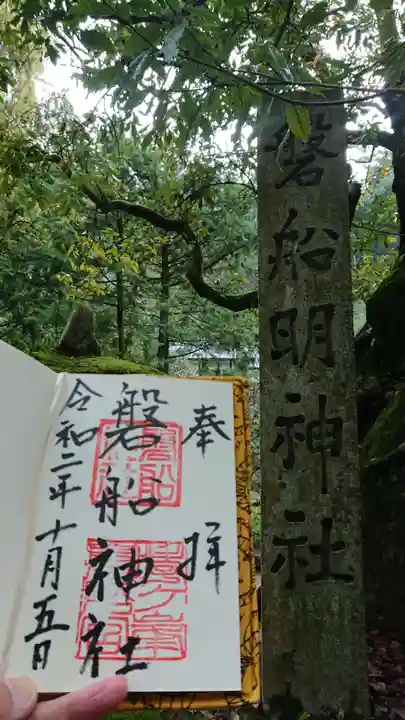 磐船明神社
奉拝
磐船神社
令和二年十月五日